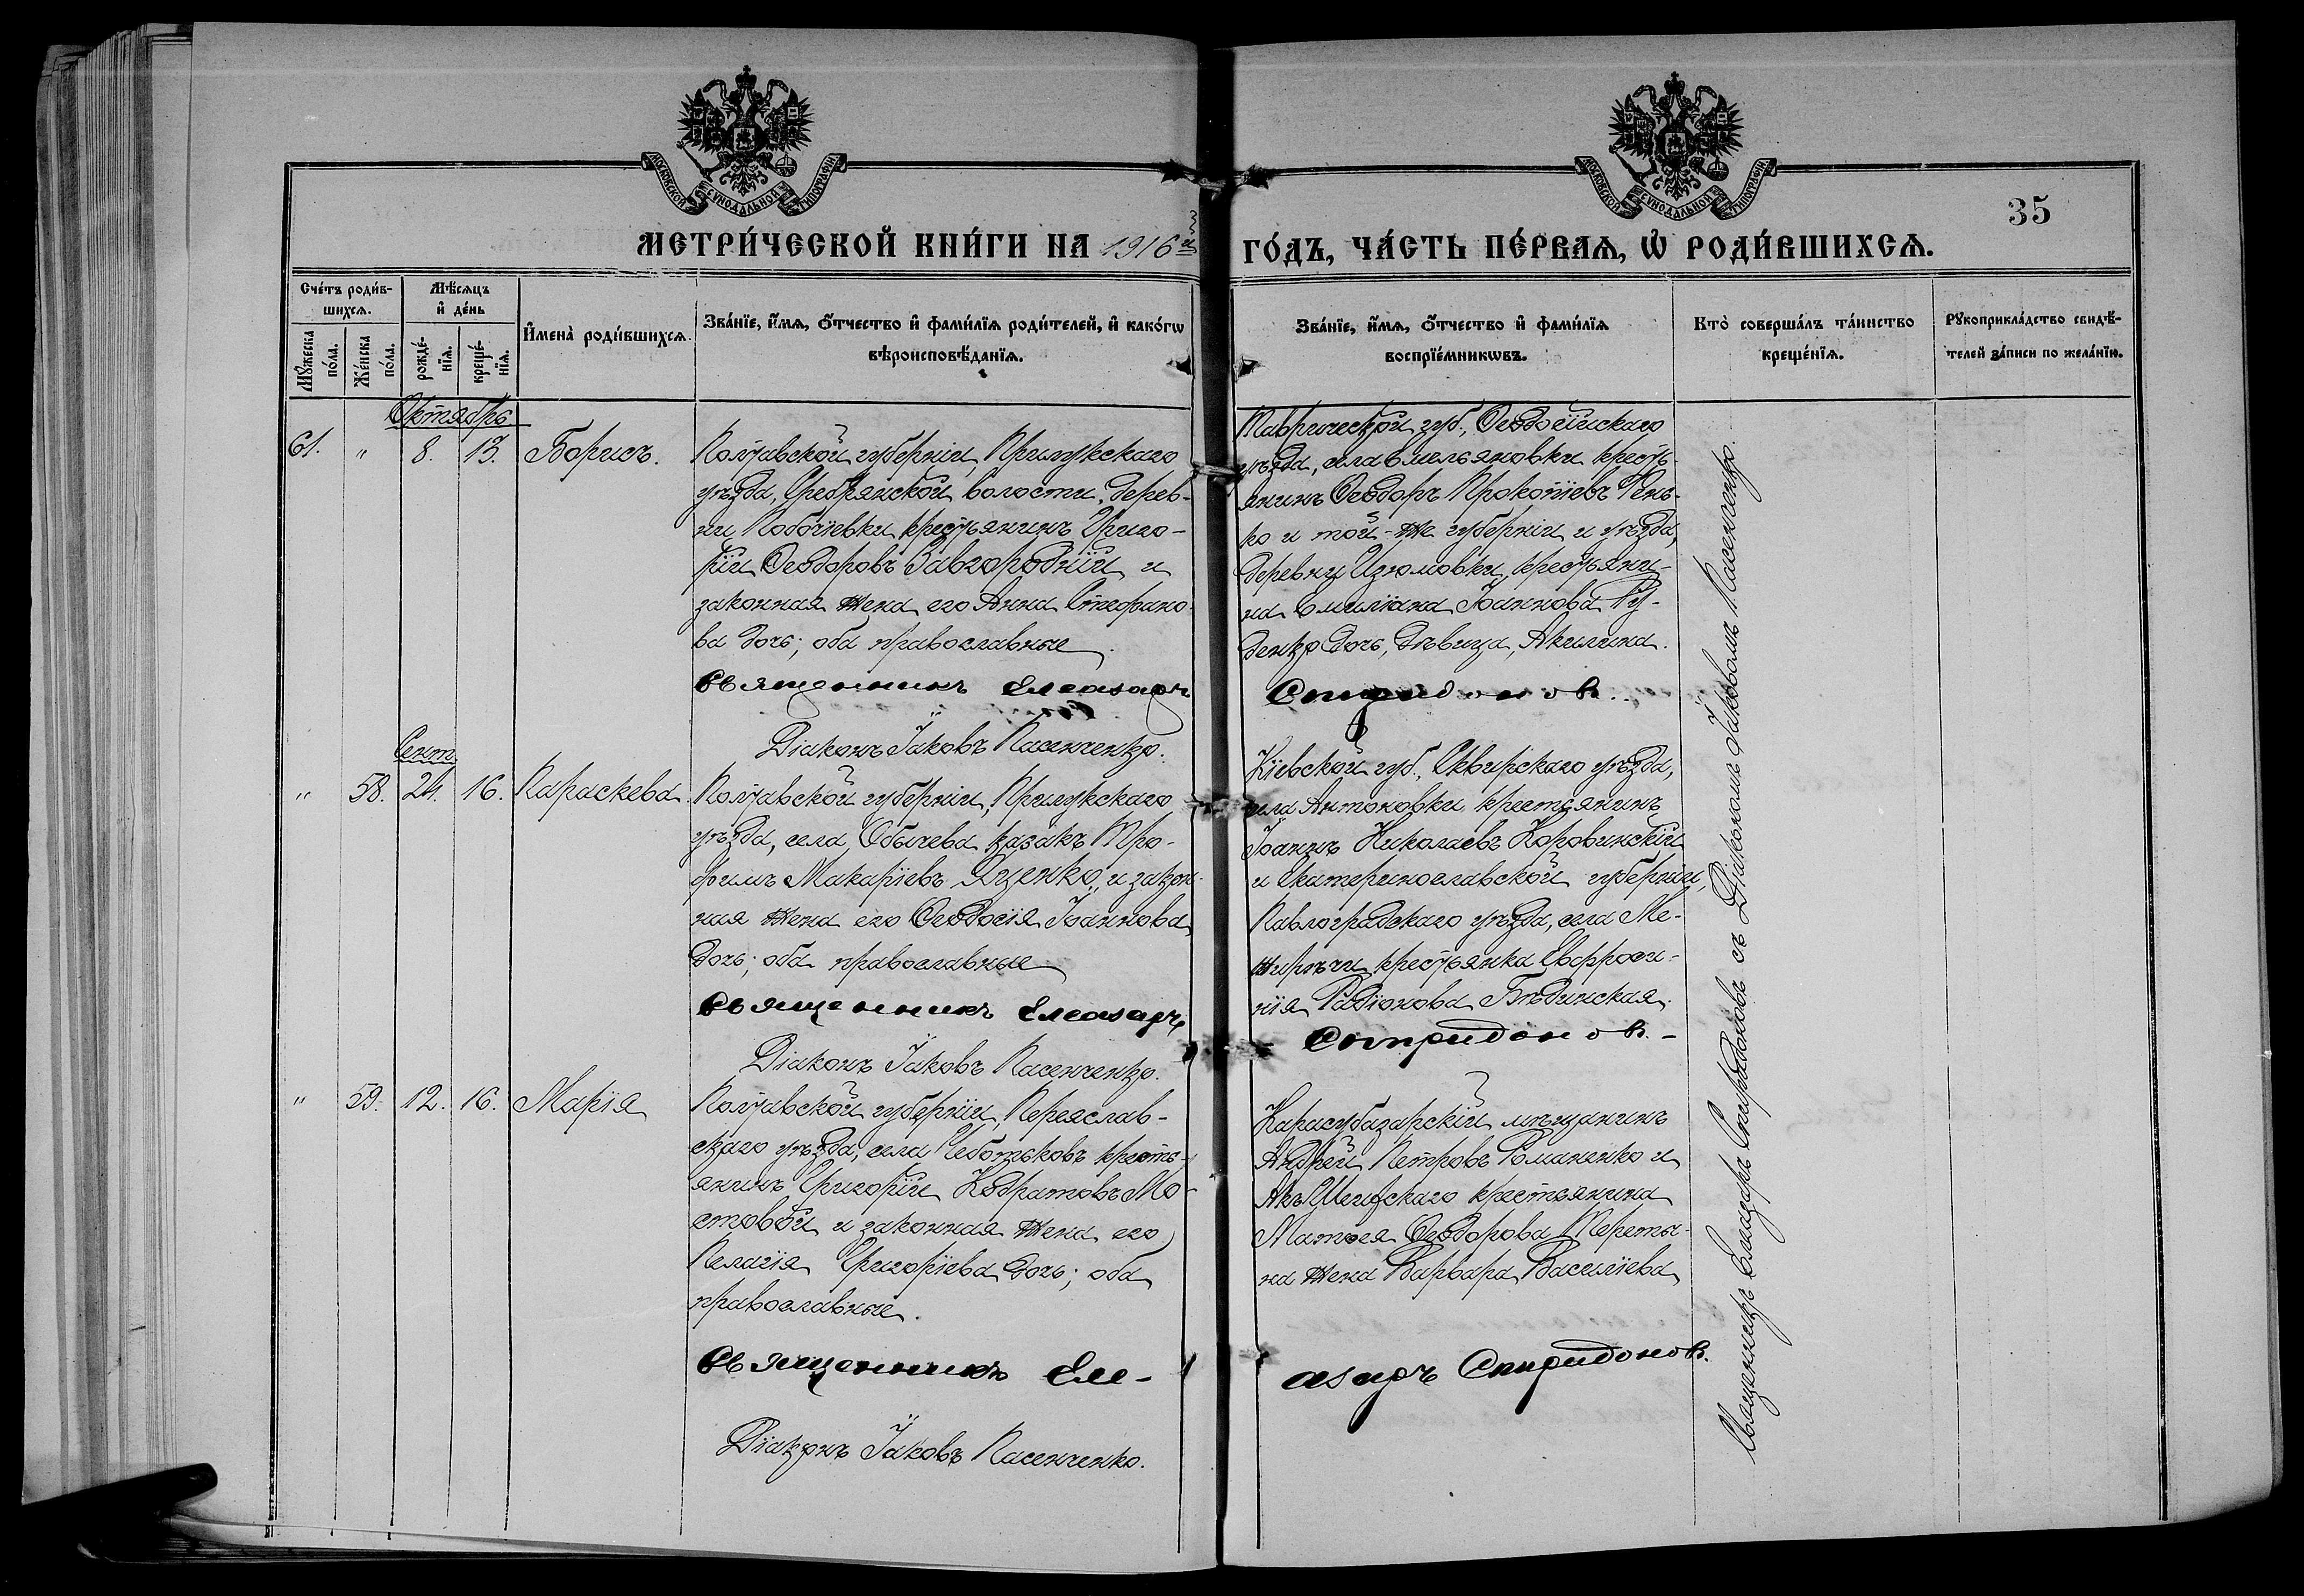 МОСКОВСКОЙ СѴНОДАЛЬНОЙ ТИПОГРАФІИ
МОСКОВСКОЙ СѴНОДАЛЬНОЙ ТИПОГРАФІИ
35
МЕТРИ́ЧЕСКОЙ КНИ́ГИ НА 1916й
ГО́ДЪ, ЧА́СТЬ ПЕ́РВАѦ, Ѡ҆ РОДИ́ВШИХСѦ.
Сче́тъ роди́в-
шихсѧ.
Мꙋ́жеска по́ла.
Же́нска по́ла.
Мѣ́сѧцъ
и҆ де́нь
рожде́-
нїѧ.
креще́-
нїѧ.
И҆мена̀ роди́вшихсѧ.
Зва́нїе, и҆́мѧ, ѻ҆́тчество и҆ фами́лїѧ роди́телей, и҆ како́гѡ
вѣроисповѣ́данїѧ.
Зва́нїе, и҆́мѧ, ѻ҆́тчество и҆ фами́лїѧ
воспрїе́мникѡвъ.
Кто̀ соверша́лъ та́инство
креще́нїѧ.
Рꙋкоприкла́дство свидѣ́-
телей за́писи по жела́нїю.
Октябрь
61. " 8. 13. Борисъ.
Полтавской губерніи, Прилукскаго
уѣзда, Сребрянской волости, дерев-
ни Побочіевки крестьянинъ Григо-
рій Ѳеодоровъ Завгородній и
законная жена его Анна Стефано-
ва дочь; оба православные.
Священникъ Елеазаръ
Діаконъ Іаковъ Пасенченко.
Таврической губ., Ѳеодосійскаго
уѣзда, села Емельяновки кресть-
янинъ Ѳеодоръ Прокопіевъ Сень-
ко и той-же губерніи и уѣзда,
деревни Изюмовки, крестьяни-
на Емиліана Іоаннова Ру-
денко дочь, дѣвица, Акилина.
Спиридоновъ.
Сент.
" 58. 24. 16. Параскева.
Полтавской губерніи, Прилукскаго
уѣзда, села Обычева казакъ Тро-
фимъ Макаріевъ Яценко, и закон-
ная жена его Ѳеодосія Іоаннова
дочь; оба православные
Священникъ Елеазаръ
Діаконъ Іаковъ Пасенченко.
Кіевской губ., Сквирскаго уѣзда,
села Антоновки крестьянинъ
Іоаннъ Николаевъ Коровинскій
и Екатеринославской губерніи,
Павлоградскаго уѣзда, села Ме-
жирѣчи крестьянка Евфроси-
нія Радіонова Бѣдинская.
Спиридоновъ. -
" 59. 12. 16. Марія
Полтавской губерніи, Переяслав-
скаго уѣзда, села Чеботьковъ кресть-
янинъ Григорій Кодратовъ Мо-
стовой и законная жена его
Пелагія Григоріева дочь; оба
православные.
Священникъ Еле-
Діаконъ Іаковъ Пасенченко.
Карасубазарскій мѣщанинъ
Андрей Петровъ Романенко и
Акъ-Шеихскаго крестьянина
Матѳея Ѳеодорова Перетя-
на жена Варвара Василіева
азаръ Спиридоновъ.
Священникъ Елеазаръ Спиридоновъ съ Діакономъ Іаковомъ Пасенченко.